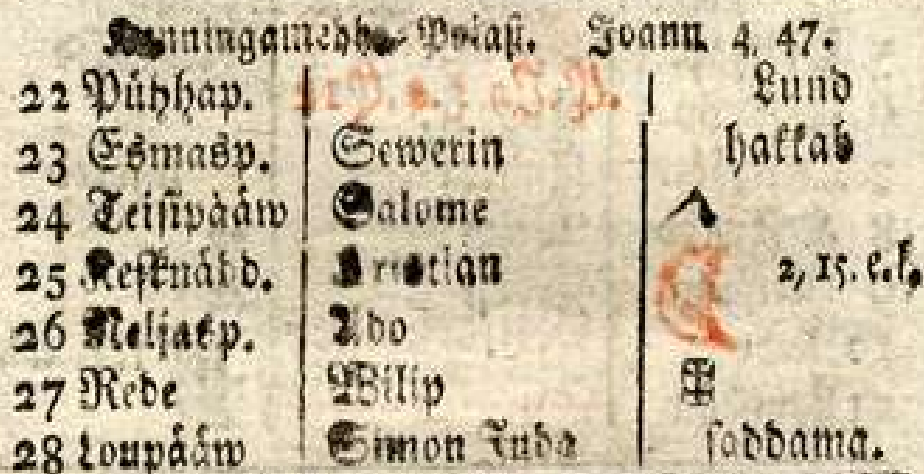 Kunningamehhe Poiast. Joann. 4, 47.
22 Pühhap. 21 P. p. 3 a J. P. Lund
23 Esmasp. Sewerin hakkab
24 Teisipääw Salome
25 Kesknäd. Kristian 2, 15. e. k.
26 Neljasp. Udo
27 Rede Wilip
28 Loupääw Simon Juda saddama.